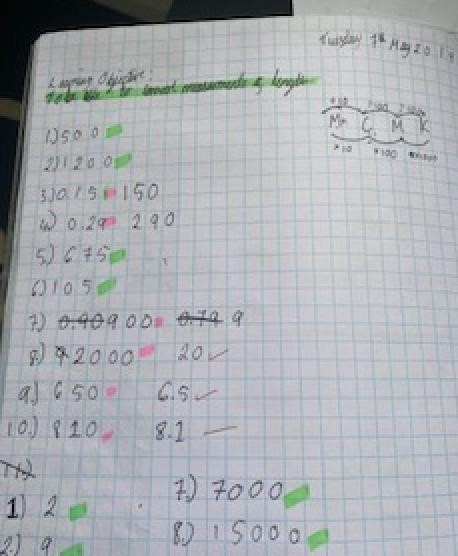 Tuesday 7th May 2019
Learning Objective:
To be able to convert measurements of length
÷10 ÷100 ÷1000
Mm C M K
×10 ×100 ×1000
1) 500
2) 1200
3) 0.15 150
4) 0.29 290
5) 675
6) 105
7) 0.90 900 0.79 9
8) 2000 20
9.) 650 6.5
10.) 810 8.1
1) 2
7) 7000
2.) 9
8.) 15000